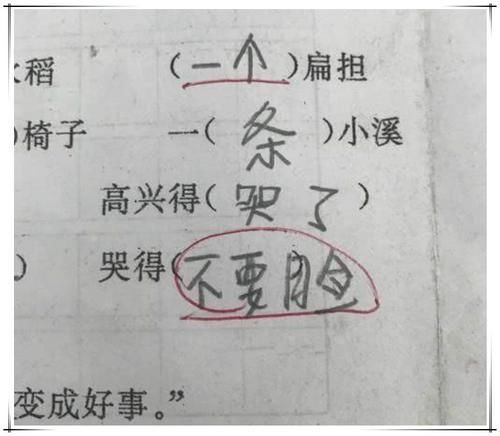 水稻 （一个）扁担
）椅子 一（条）小溪
高兴得（哭了）
） 哭得（不要脸
变成好事。”